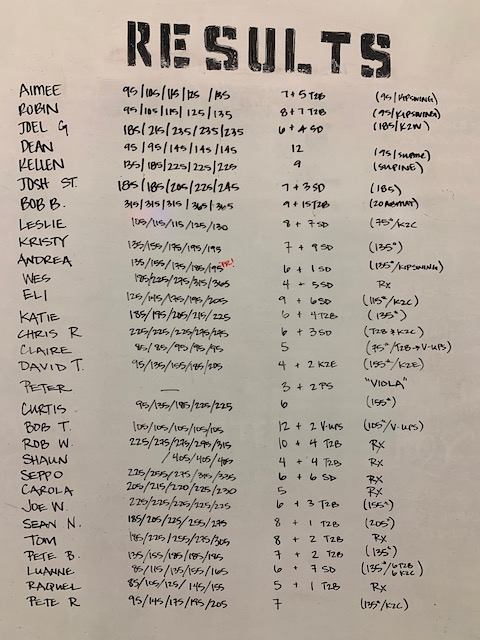 RESULTS
AIMEE 95/105/115/125/135 7+5 T2B (95/KIPSWING)
ROBIN 95/105/115/125/135 8+7 T2B (95/KIPSWING)
JOEL G 185/215/235/235/235 6+4 SD (185/K2W)
DEAN 95/95/145/145/145 12
KELLEN 135/185/225/225/225 9 (95/SUPINE) (SUPINE)
JOSH ST. 185/185/205/225/245 7+3 SD (185)
BOB B. 315/315/315/365/365 9+15 T2B (20 ABMAT)
LESLIE 105/115/115/125/130 8+7 SD (75#/K2C
KRISTY 135/155/175/195/195 7+9 SD (135#)
ANDREA 135/155/175/185/195 PR! 6+1 SD (135#/KIPSWING)
WES 185/225/275/315/365 4+5 SD RX
ELI 125/145/175/195/205 9+6 SD (115#/K2C)
KATIE 185/195/205/215/225 6+4 T2B (135#)
CHRIS R 225/225/225/275/275 6+3 SD (T2B→K2C)
CLAIRE 85/85/95/95/95 5 (75#/T2B→V-UPS)
DAVID T. 95/135/155/185/205 4+2 K2E (155#/K2E)
PETER — 3+2 PS "VIOLA"
CURTIS 95/135/185/225/225 6 (155#)
BOB T. 105/105/105/105/105 12+2 V-UPS (105#/V-UPS)
ROB W. 225/275/275/295/315 10+4 T2B RX
SHAUN /405/405/405 4+4 T2B RX
SEPPO 225/255/275/315/335 6+6 SD RX
CAROLA 205/215/220/225/230 5 RX
JOE W. 225/225/225/225/225 6+3 T2B (155#)
SEAN N. 185/205/225/255/275 8+1 T2B (205#)
TOM 185/225/255/275/305 8+2 T2B RX
PETE B. 135/155/185/185/185 7+2 T2B (135#)
LUANNE 85/115/135/155/165 6+7 SD (135#/6T2B 6K2C)
RAQUEL 85/105/125/145/155 5+1 T2B RX
PETE R 95/145/175/195/205 7 (135#/K2C)